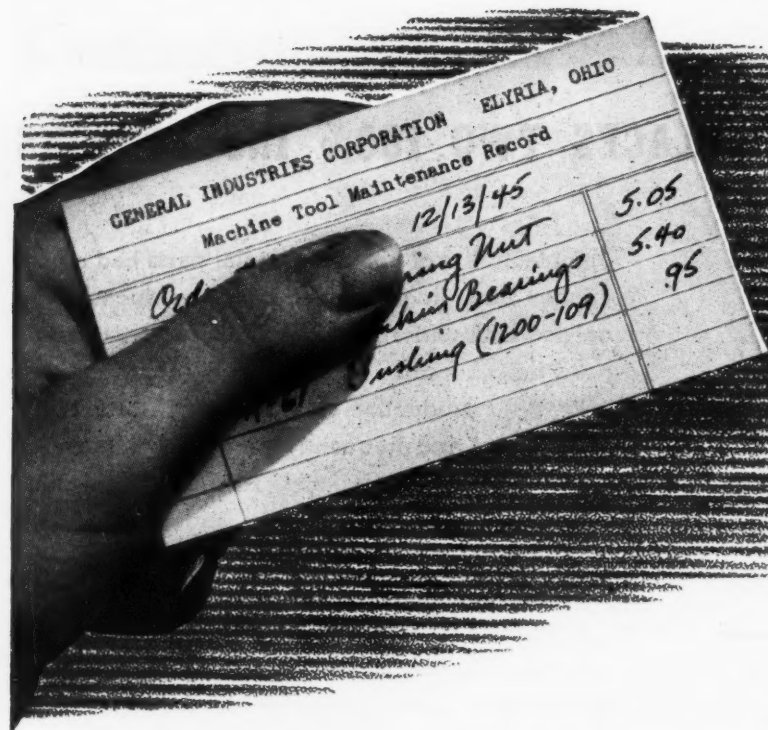 GENERAL INDUSTRIES CORPORATION ELYRIA, OHIO
Machine Tool Maintenance Record
12/13/45
Nut 5.05
Bearings 5.40
Bushing (1200-109) .95